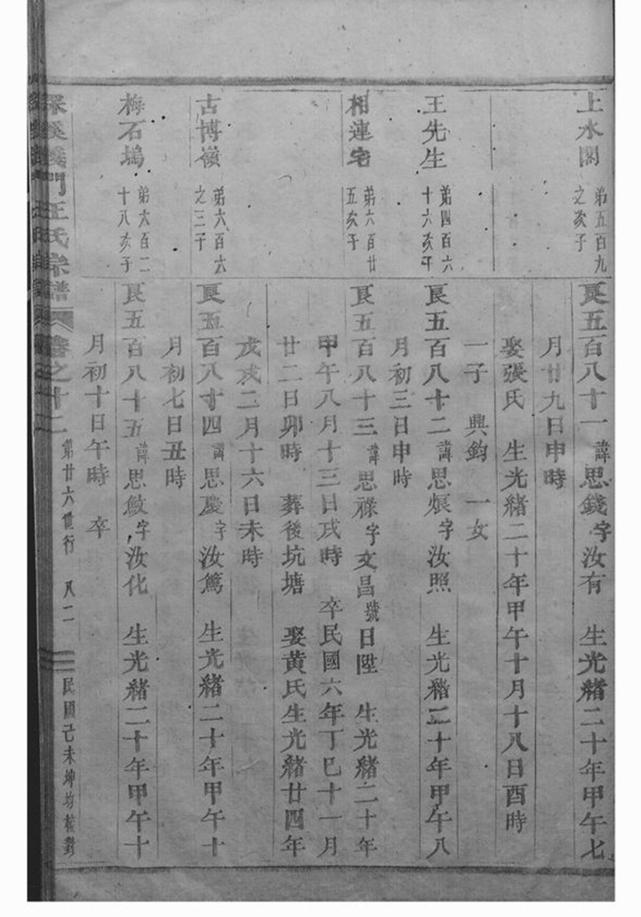 上水閣 第五百九之亥子
良五百八十一諱思錢字汝有 生光緒二十年甲午七
月廿九日申時
娶張氏 生光緒二十年甲午十月十八日酉時
一子 興鈞 一女
王先生 第四百六十六亥子
良五百八十二諱思 字汝照 生光緒二十年甲午八
月初三日申時
相連宅 第六百廿五亥子
良五百八十三諱思祿字文昌號日陞 生光緒二十年
甲午八月十三日戌時 卒民國六年丁巳十一月
廿二日卯時 葬後坑塘 娶黃氏生光緒廿四年
戊戌二月十六日未時
古博嶺 第六百六之三子
良五百八十四諱思慶字汝篤 生光緒二十年甲午十
月初七日丑時
梅石塢 第六百二十八亥子
良五百八十五諱思敏字汝化 生光緒二十年甲午十
月初十日午時 卒
溪義門王氏宗譜 卷之十二 第廿六世行 八二 民國己未坤均校對